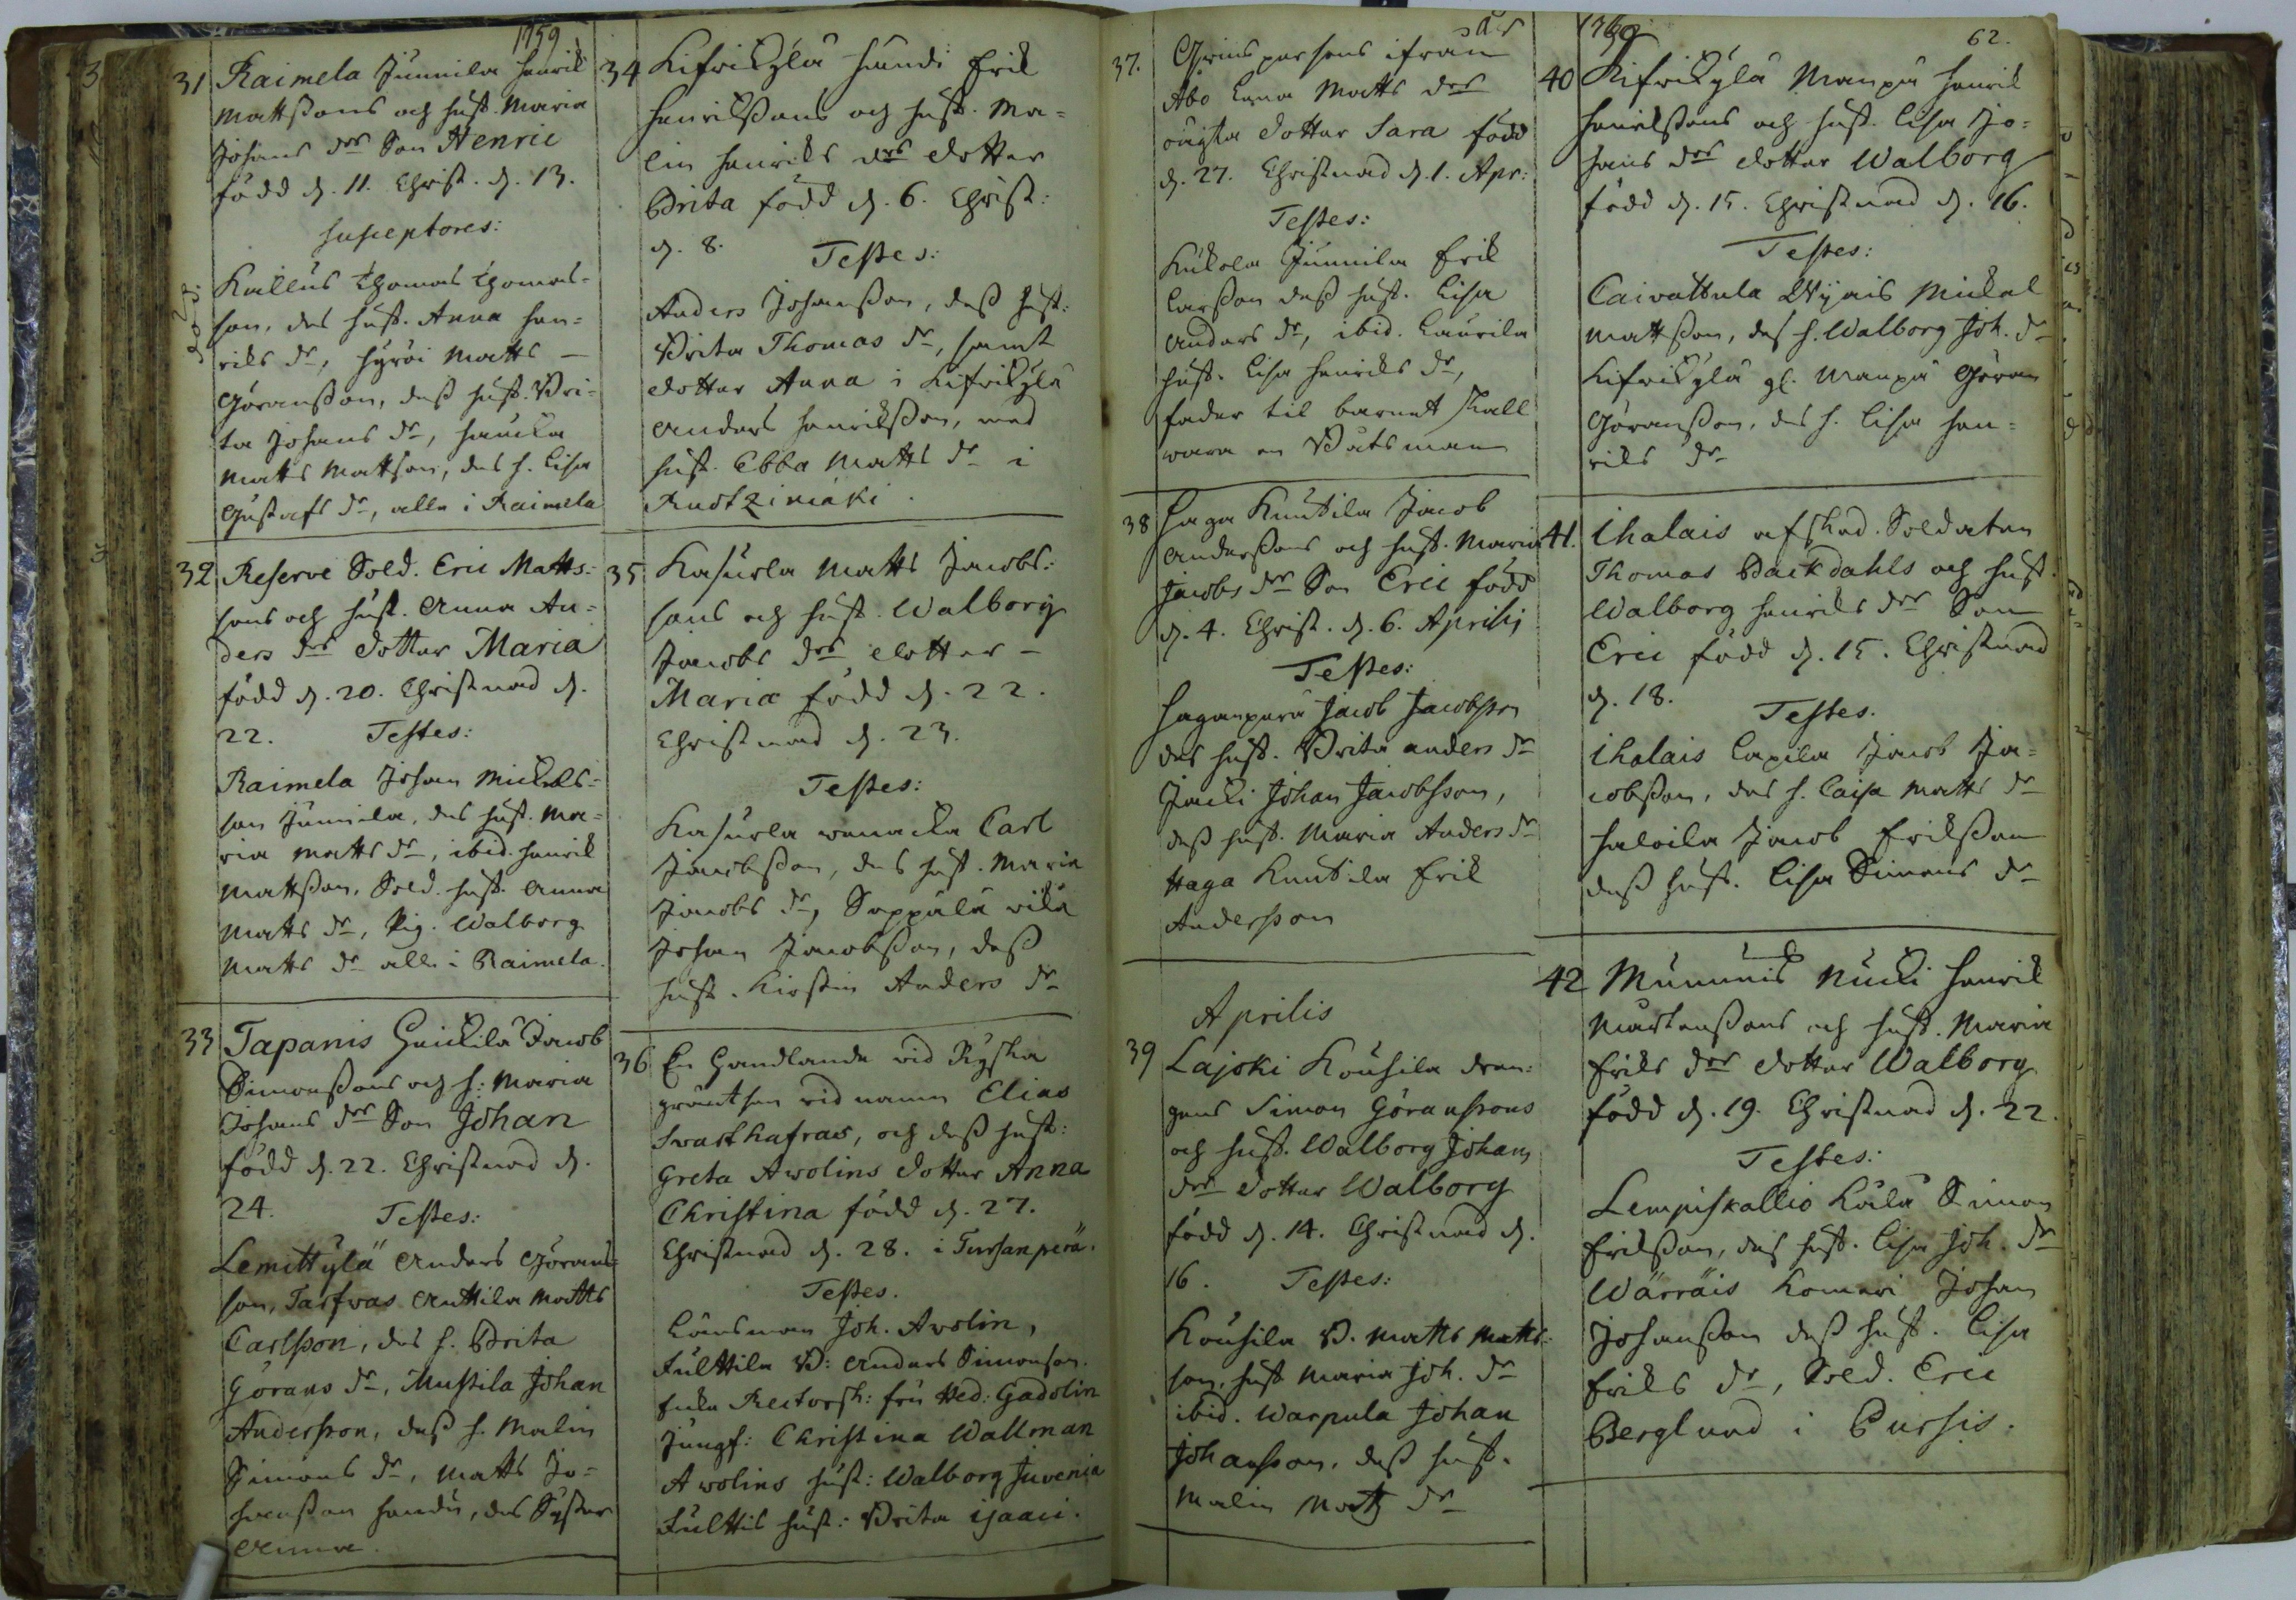 1759
31 Raimela Junnila Henrik
Mattssons och hust. Maria
Johans dr Son Henric
född d. 11. Christ. d. 13.
Susceptores:
Kallus Thomas Thomas-
son, des hust. Anna Hen-
riks dr, Hyrói Matts
Göransson, dess hust. Bri-
ta Johans dr, Haucka
Matts Mattson, des h. Lisa
Gustafs dr, alla i Raimela
32 Reserve Sold. Eric Matts-
sons och hust. Anna An-
ders dr dotter Maria
född d. 20. Christnad d.
22. Testes:
Raimela Johan Mickels-
son Junnila, des hust. Ma-
ria Matts dr, ibid. Henrik
Mattsson, Sold. hust. Anna
Matts dr, Pig. Walborg
Matts dr alla i Raimela.
33 Tapanis Heickilä Jacob
Simonssons och h: Maria
Johans dr Son Johan
född d. 22. Christnad d.
24. Testes:
Lemittylä Anders Görans-
son, Tarfwas Anttila Matts
Carlsson, des h. Brita
Görans dr, Mustila Johan
Andersson, dess h. Malin
Simons dr, Matts Jo-
hansson Handu, des Syster
Anna.
34 Kifrikylä Hundi Erik
Henrikssons och hust. Ma-
lin Henriks drs dotter
Brita född d. 6. Christ:
d. 8. Testes:
Anders Johansson, dess hust:
Brita Thomas dr, samt
dotter Anna i Kifrikylä
Anders Henriksson, med
hust. Ebba Matts dr i
Ruotzimäki.
35 Kasurla Matts Jacobs-
sons och hust. Walborg
Jacobs drs dotter
Maria född d. 22.
Christnad d. 23.
Testes:
Kasurla Carl
Jacobsson, des hust. Maria
Jacobs dr, Seppälä
Johan Jacobsson, dess
hust. Kirstin Anders dr
36 En Handlande vid Ryska
gräntsen vid namn Elias
, och dess hust:
Greta Awolins dotter Anna
Christina född d. 27.
Christnad d. 28. i Tursanperä.
Testes.
Länsman Joh. Awolin,
Fulttila B: Anders Simonson.
Enka Rectorsk: fru Hed: Gadolin
Jungf: Christina Wallman
Awolins hust: Walborg Juvenia
Fulttis hust: Brita Isaaci.
37. ifrån
Åbo Lena Matts drs
oägta dotter Sara född
d. 27. Christnad d. 1. Apr:
Testes:
Kukola Junnila Erik
Larsson dess hust. Lisa
Anders dr, ibid. Laurila
hust. Lisa Henriks dr,
fader til barnet skall
wara en Båtsman
38 Haga Knutila Jacob
Anderssons och hust. Maria
Jacobs dr Son Eric född
d. 4. Christ. d. 6. Aprilis
Testes:
Haganperä Jacob Jacobsson
des hust. Brita Anders dr
Jacki Johan Jacobsson,
dess hust. Maria Anders dr
Haga Knutila Erik
Andersson
Aprilis
39 Lajoki Kousila dren-
gens Simon Göranssons
och hust. Walborg Johans
drs dotter Walborg
född d. 14. Christnad d.
16. Testes:
Kousila B. Matts Matts-
son, hust Maria Joh. dr
ibid. Warpula Johan
Johansson, dess hust.
Malin Matts dr
1760
62.
40 Kifrikylä Manpä Henrik
Henrikssons och hust. Lisa Jo-
hans drs dotter Walborg
född d. 15. Christnad d. 16.
Testes:
Caivattula Wijais Mickel
Mattsson, des h. Walborg Joh. dr
Kifrikylä gl. Manpä Göran
Göransson, des h. Lisa Hen-
riks dr
41. Ihalais afsked. Soldaten
Thomas Backdahls och hust.
Walborg Henriks drs Son
Eric född d. 15. Christnad
d. 18. Testes.
Ihalais Capila Jacob Ja-
cobsson, des h. Caisa Matts dr
Haloila Jacob Eriksson
dess hust. Lisa Simons dr
42 Mummis Nucki Henrik
Mårtenssons och hust. Maria
Eriks drs dotter Walborg
född d. 19. Christnad d. 22.
Testes:
Lempiskallio Kylä Simon
Eriksson, des hust. Lisa Joh. dr
Wärräis Komeri Johan
Johansson dess hust. Lisa
Eriks dr, Sold. Eric
Berglund i Pursis.